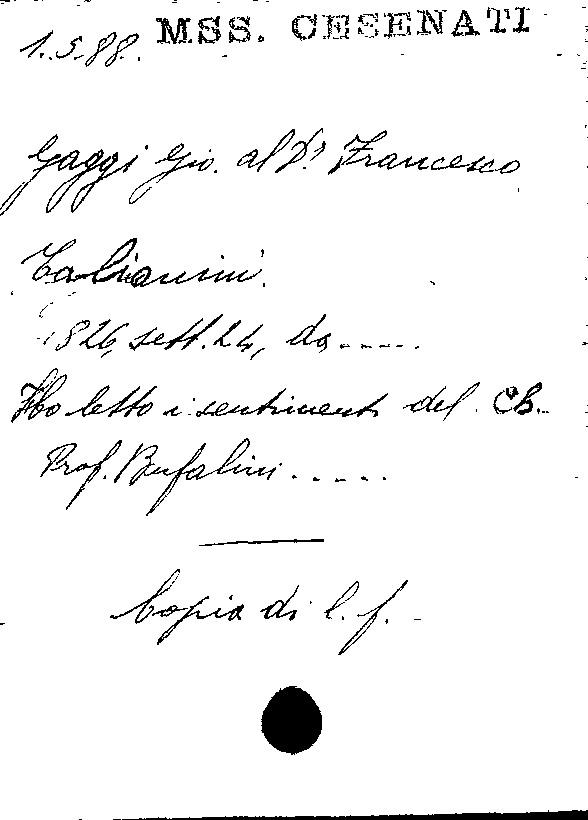 MSS. CESENATI
1.5.88.
Gaggi Gio. al Dr. Francesco
Talianini.
1826, sett. 24, da.....
Ho letto i sentimenti del Ch.
Prof. Bufalini.....
Copia di c. f.